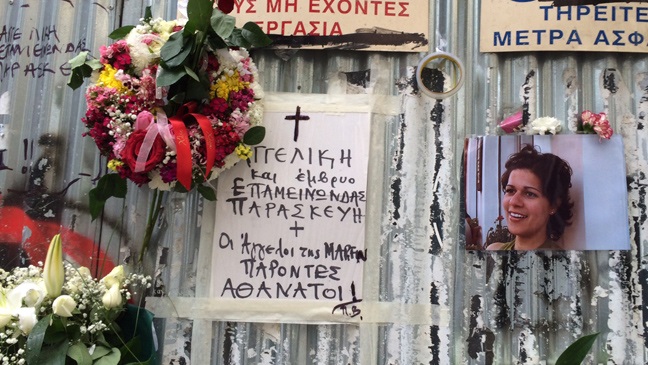 ΟΥΣ ΜΗ ΕΧΟΝΤΕΣ
ΕΡΓΑΣΙΑ
ΤΗΡΕΙΤΕ
ΜΕΤΡΑ ΑΣΦ
ΓΓΕΛΙΚΗ
και έμβρυο
ΕΠΑΜΕΙΝΩΝΔΑΣ
ΠΑΡΑΣΚΕΥΗ
Οι Άγγελοι της MARFIN
ΠΑΡΟΝΤΕΣ
ΑΘΑΝΑΤΟΙ!
Π.Β.